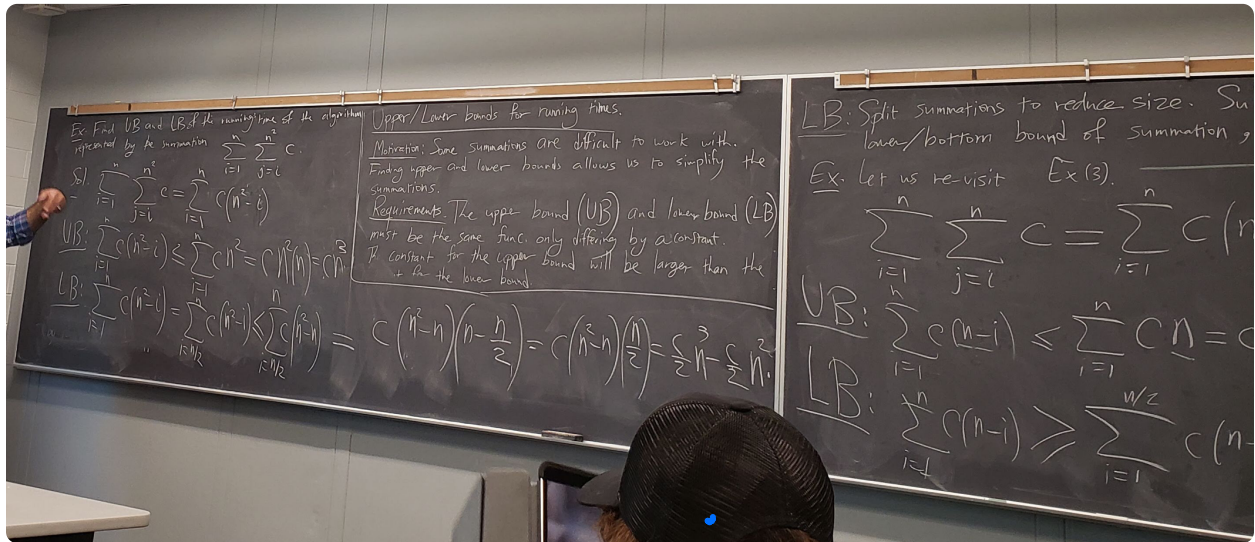 Ex. Find UB and LB of the running time of the algorithm
represented by the summation \sum_{i=1}^{n} \sum_{j=i}^{n^2} c.
Sol. \sum_{i=1}^{n} \sum_{j=i}^{n^2} c = \sum_{i=1}^{n} c(n^2-i)
UB: \sum_{i=1}^{n} c(n^2-i) ≤ \sum_{i=1}^{n} cn^2 = cn^2(n) = cn^3.
LB: \sum_{i=1}^{n} c(n^2-i) = \sum_{i=n/2}^{n} c(n^2-i) ≤ \sum_{i=n/2}^{n} c(n^2-n) = c(n^2-n)(n-\frac{n}{2}) = c(n^2-n)(\frac{n}{2}) = \frac{c}{2}n^3-\frac{c}{2}n^2.
Upper/Lower bounds for running times.
Motivation: Some summations are difficult to work with.
Finding upper and lower bounds allows us to simplify the
summations.
Requirements. The upper bound (UB) and lower bound (LB)
must be the same func. only differing by a constant.
constant for the upper bound will be larger than the
for the lower bound.
LB: Split summations to reduce size.
lower/bottom bound of summation,
Ex. Let us re-visit Ex(3).
\sum_{i=1}^{n} \sum_{j=i}^{n} c = \sum_{i=1}^{n} c(n
UB: \sum_{i=1}^{n} c(n-i) ≤ \sum_{i=1}^{n} cn = c
LB: \sum_{i=1}^{n} c(n-i) ≥ \sum_{i=1}^{n/2} c(n-